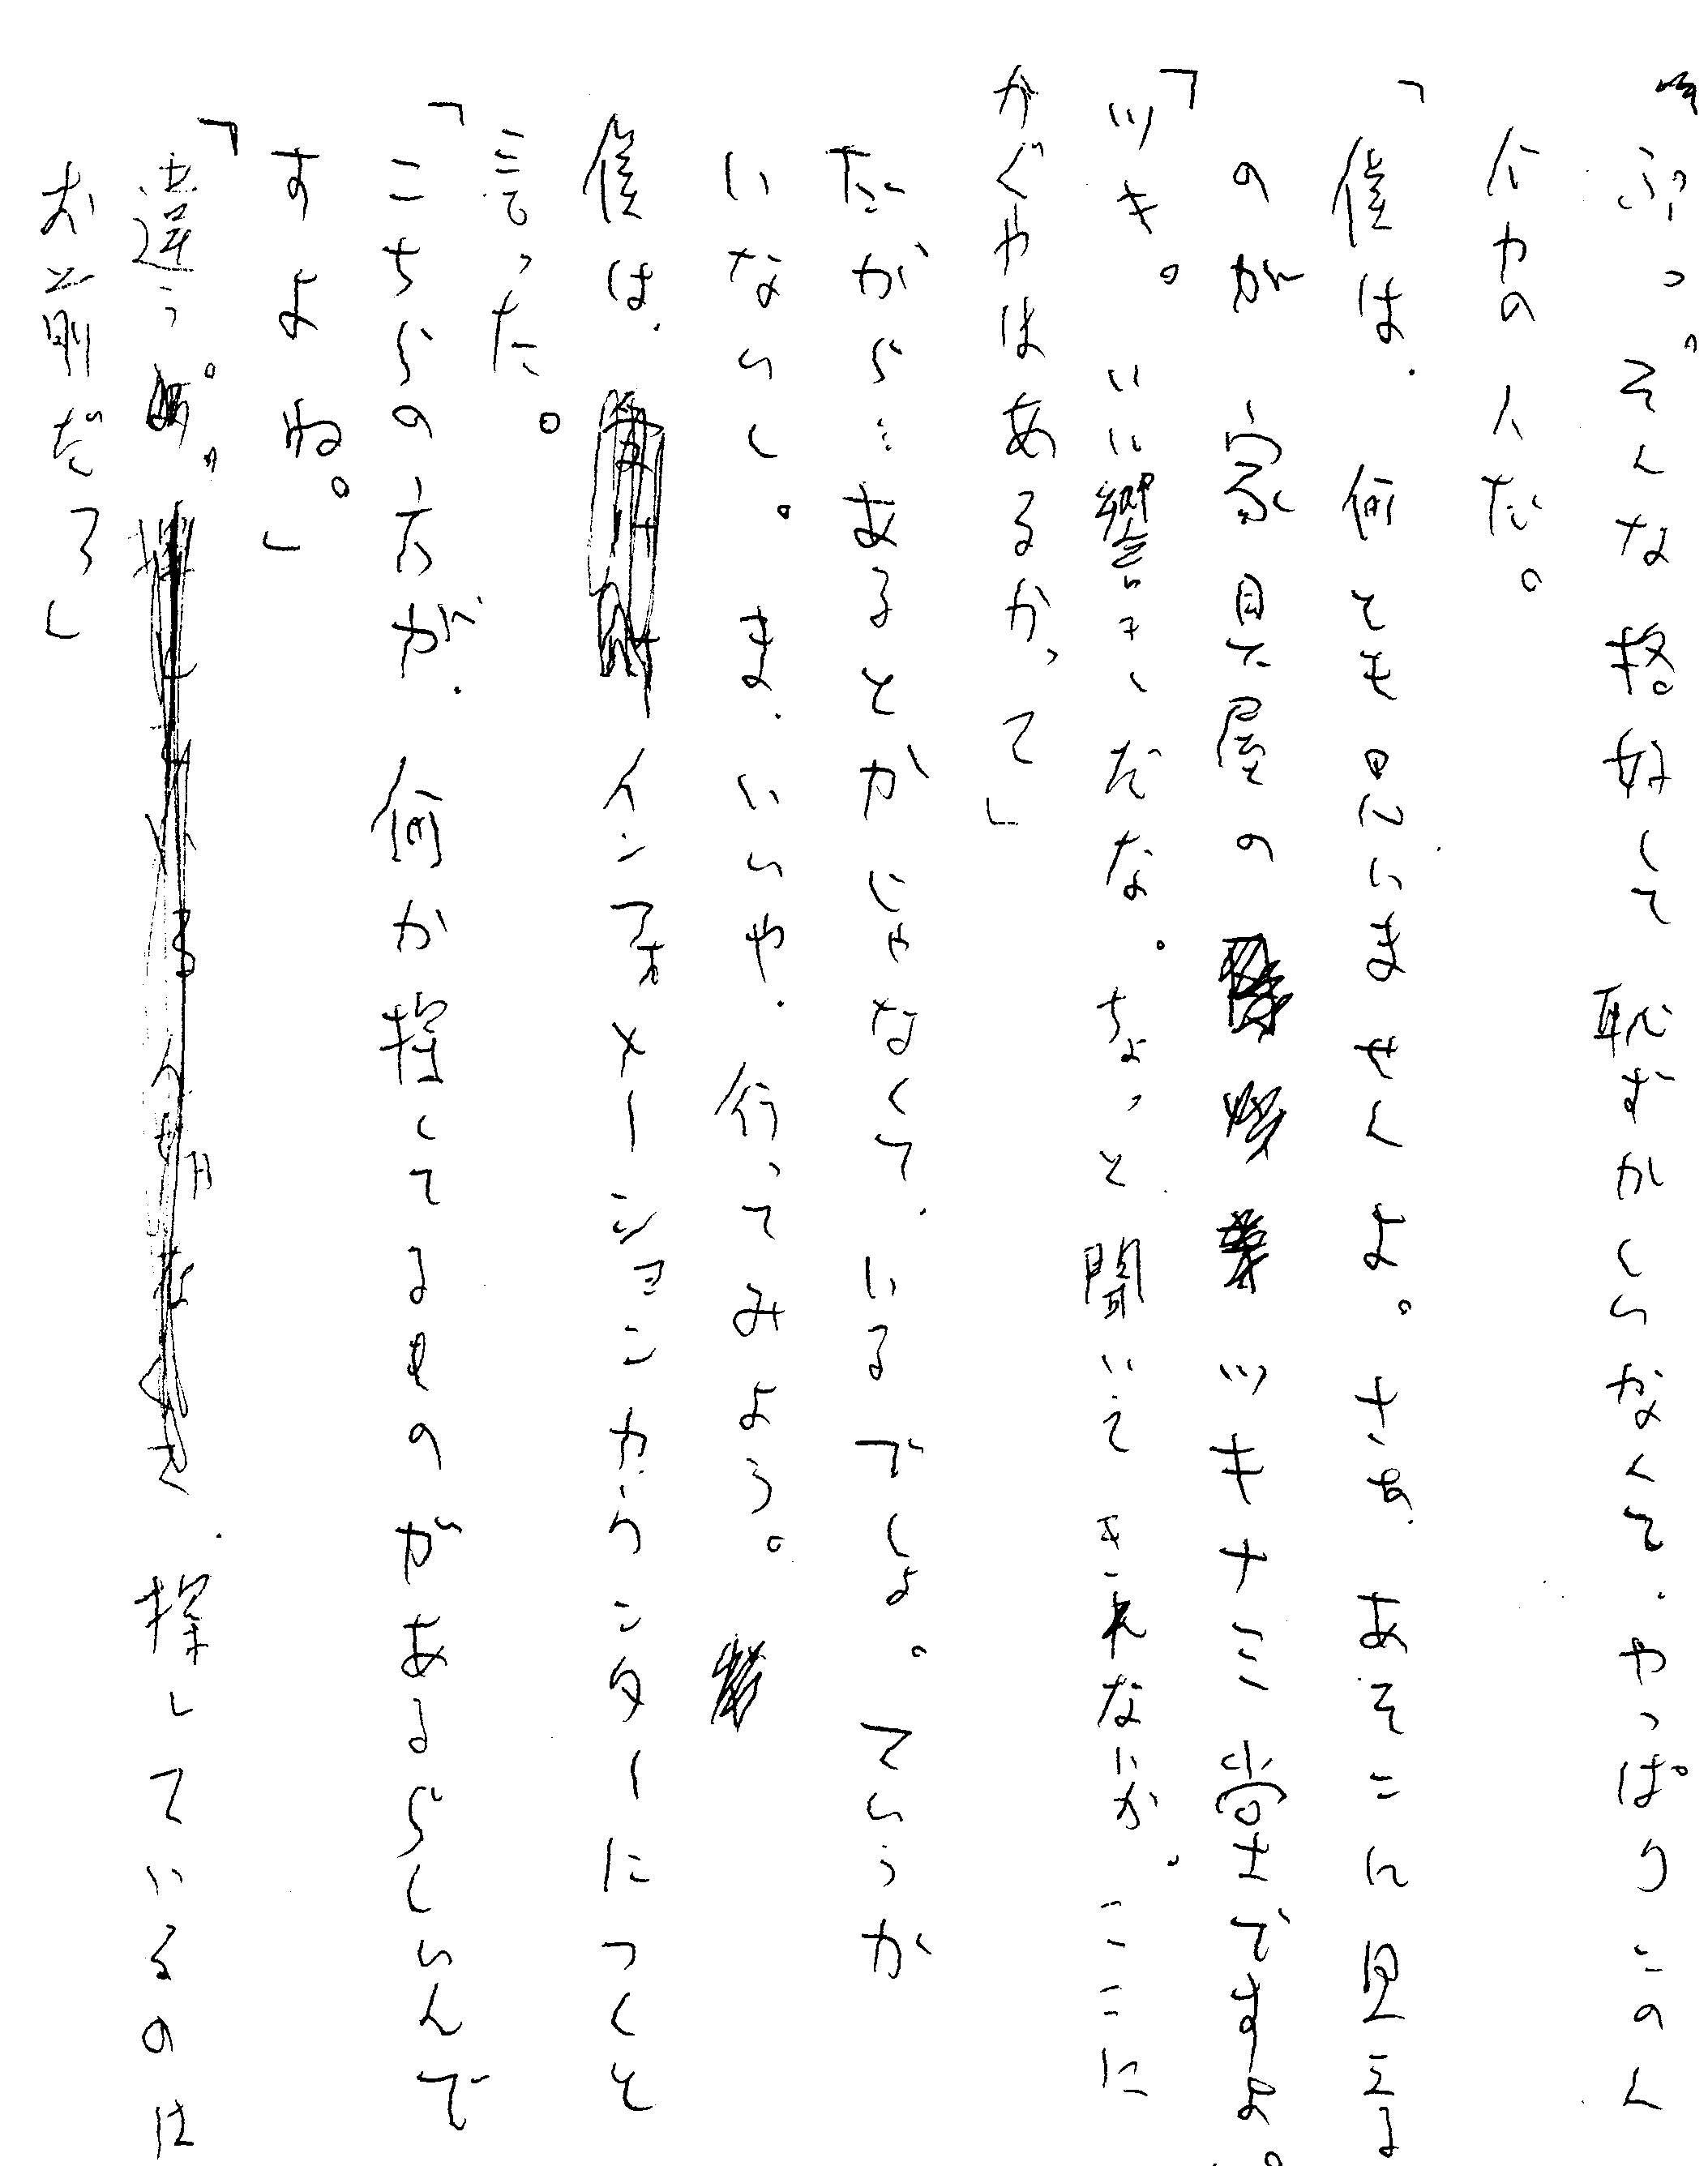 ぷっ。そんな格好して恥ずかしいなくて、やっぱりこのん
介力の人だ。
「僕は、何とも思いませんよ。さあ、あそこに見える
のが家具屋のツキナミ堂ですよ。
「ツキ。いい響きだな。ちょっと聞いてきれなにか。ここに
かぐやはあるかって」
だから…あるとかじゃなくて、いるでしょ。ていうか
いないし。ま、いいや、行ってみよう。
僕は、インフォメーションカウンターにつくと
言った。
「こちらの方が、何か探してるものがあるらしいんで
すよね。」
「違う。探しているのは
お前だろ」